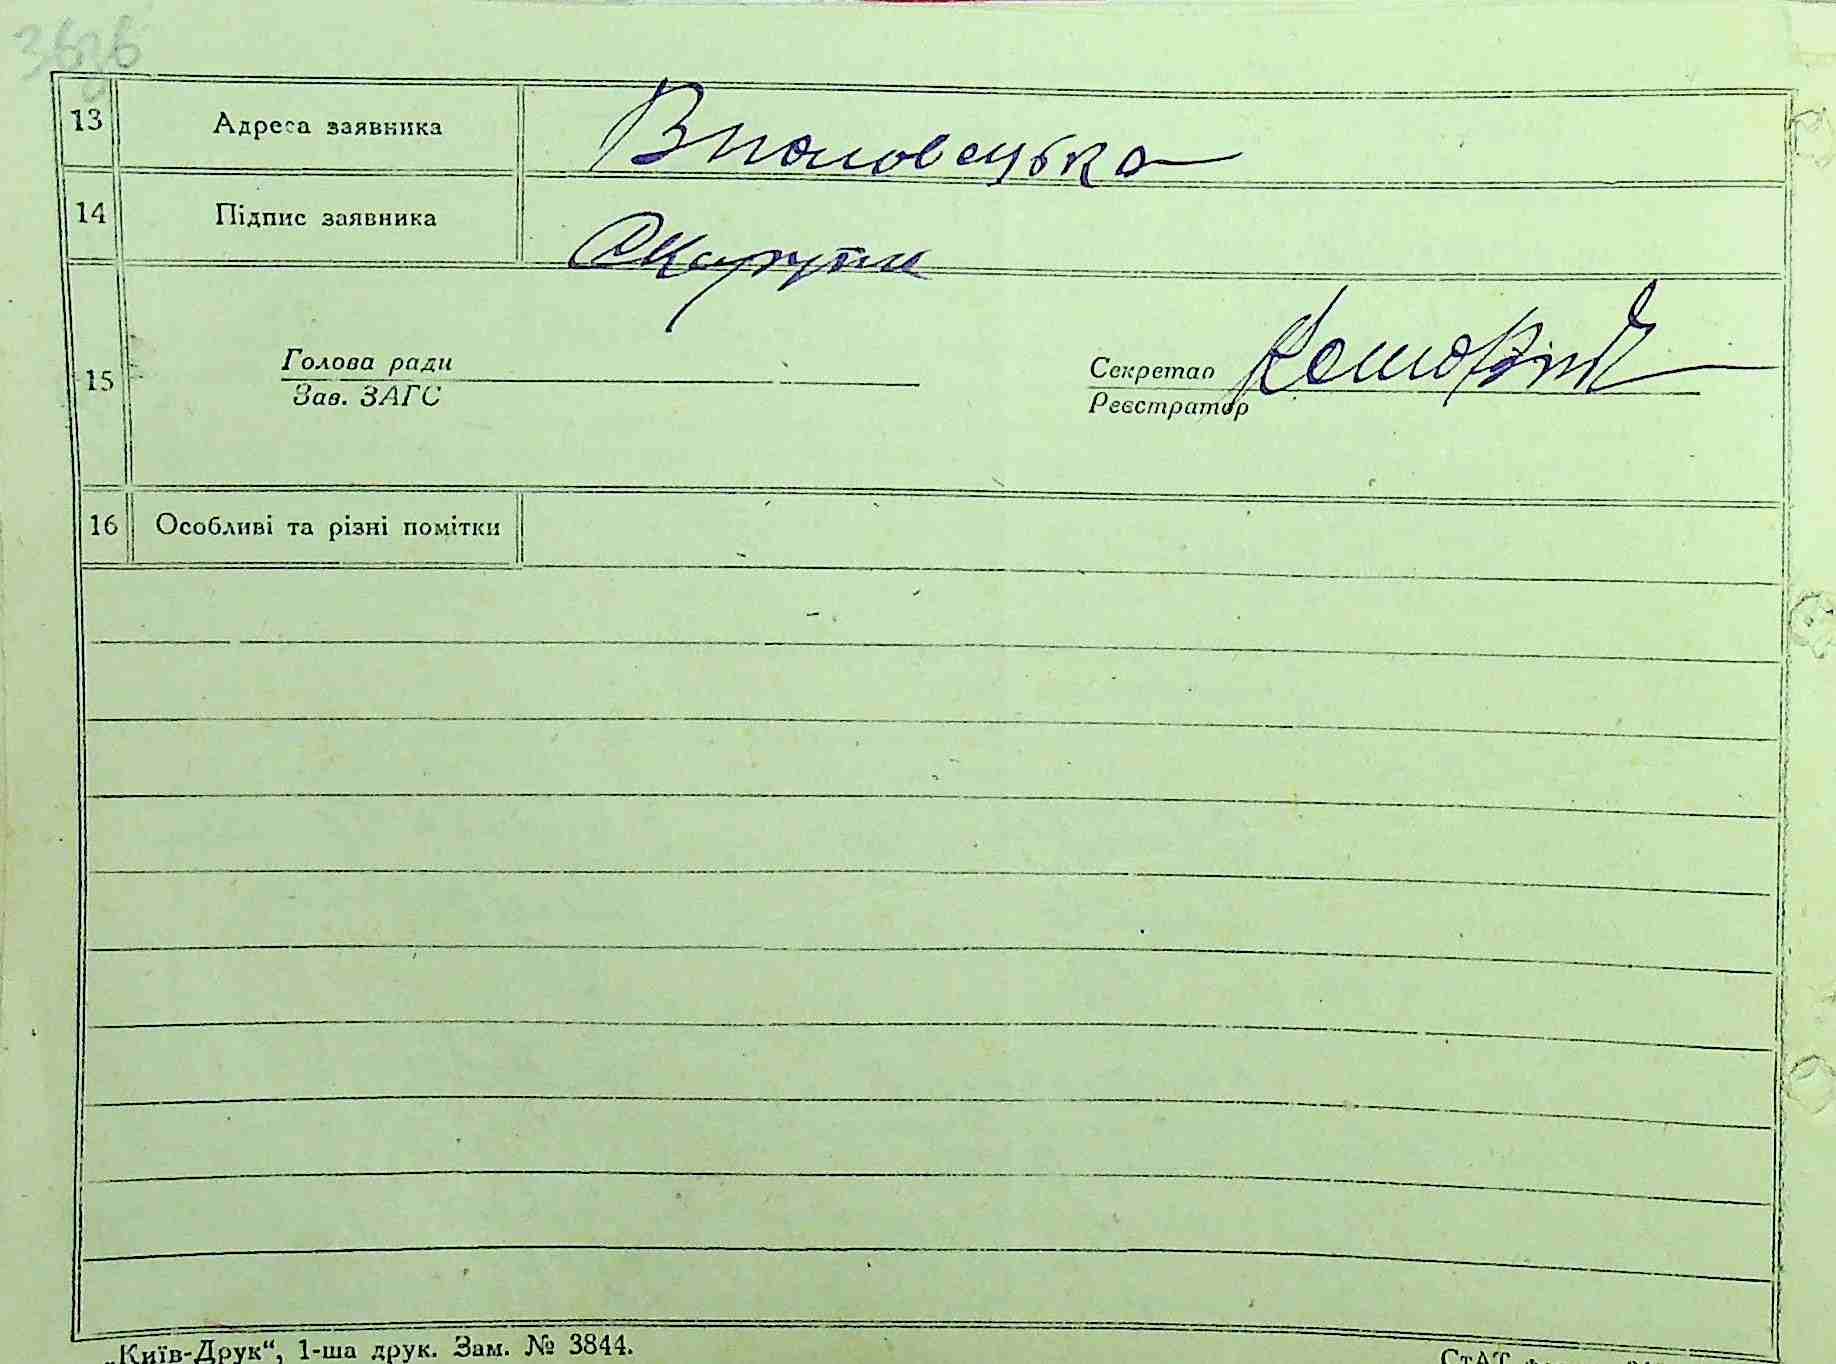 3626
13 Адреса заявника
14 Підпис заявника
15 Голова ради Секретар
Зав. ЗАГС Реєстратор
16 Особливі та різні помітки
„Київ-Друк“, 1-ша друк. Зам. № 3844. СтАТ